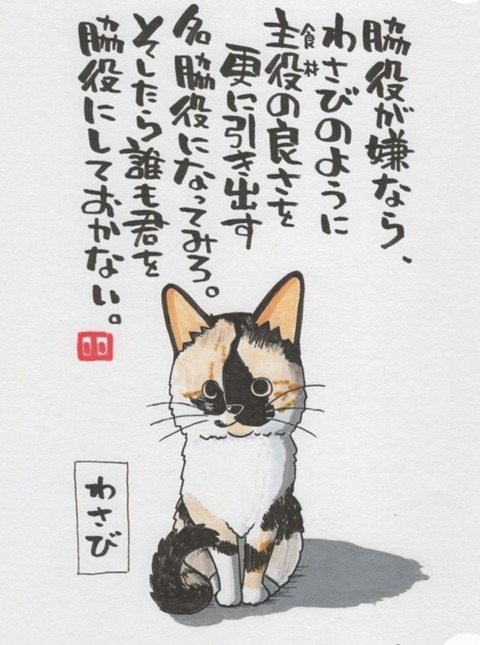 脇役が嫌なら、
わさびのように
食材
主役の良さを
更に引き出す
名脇役になってみろ。
そしたら誰も君を
脇役にしておかない。
わさび